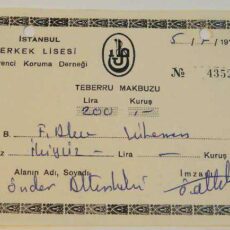 İSTANBUL
ERKEK LİSESİ
renci Koruma Derneği
5/
/19
№ 4352
TEBERRU MAKBUZU
Lira Kuruş
200 ,—
B.
z İkiyüz — Lira — Kuruş
Alanın Adı, Soyadı İmza
Önder